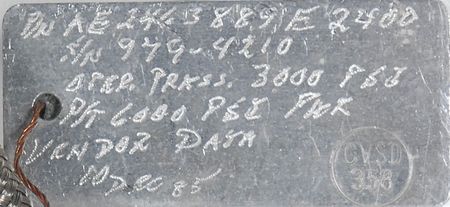 PN AE2463889E2400
S/N 979-4210
OPER. PRESS. 3000 PSI
P/T 6000 PSI PWR
VENDOR DATA
DEC 85
CVSD
358